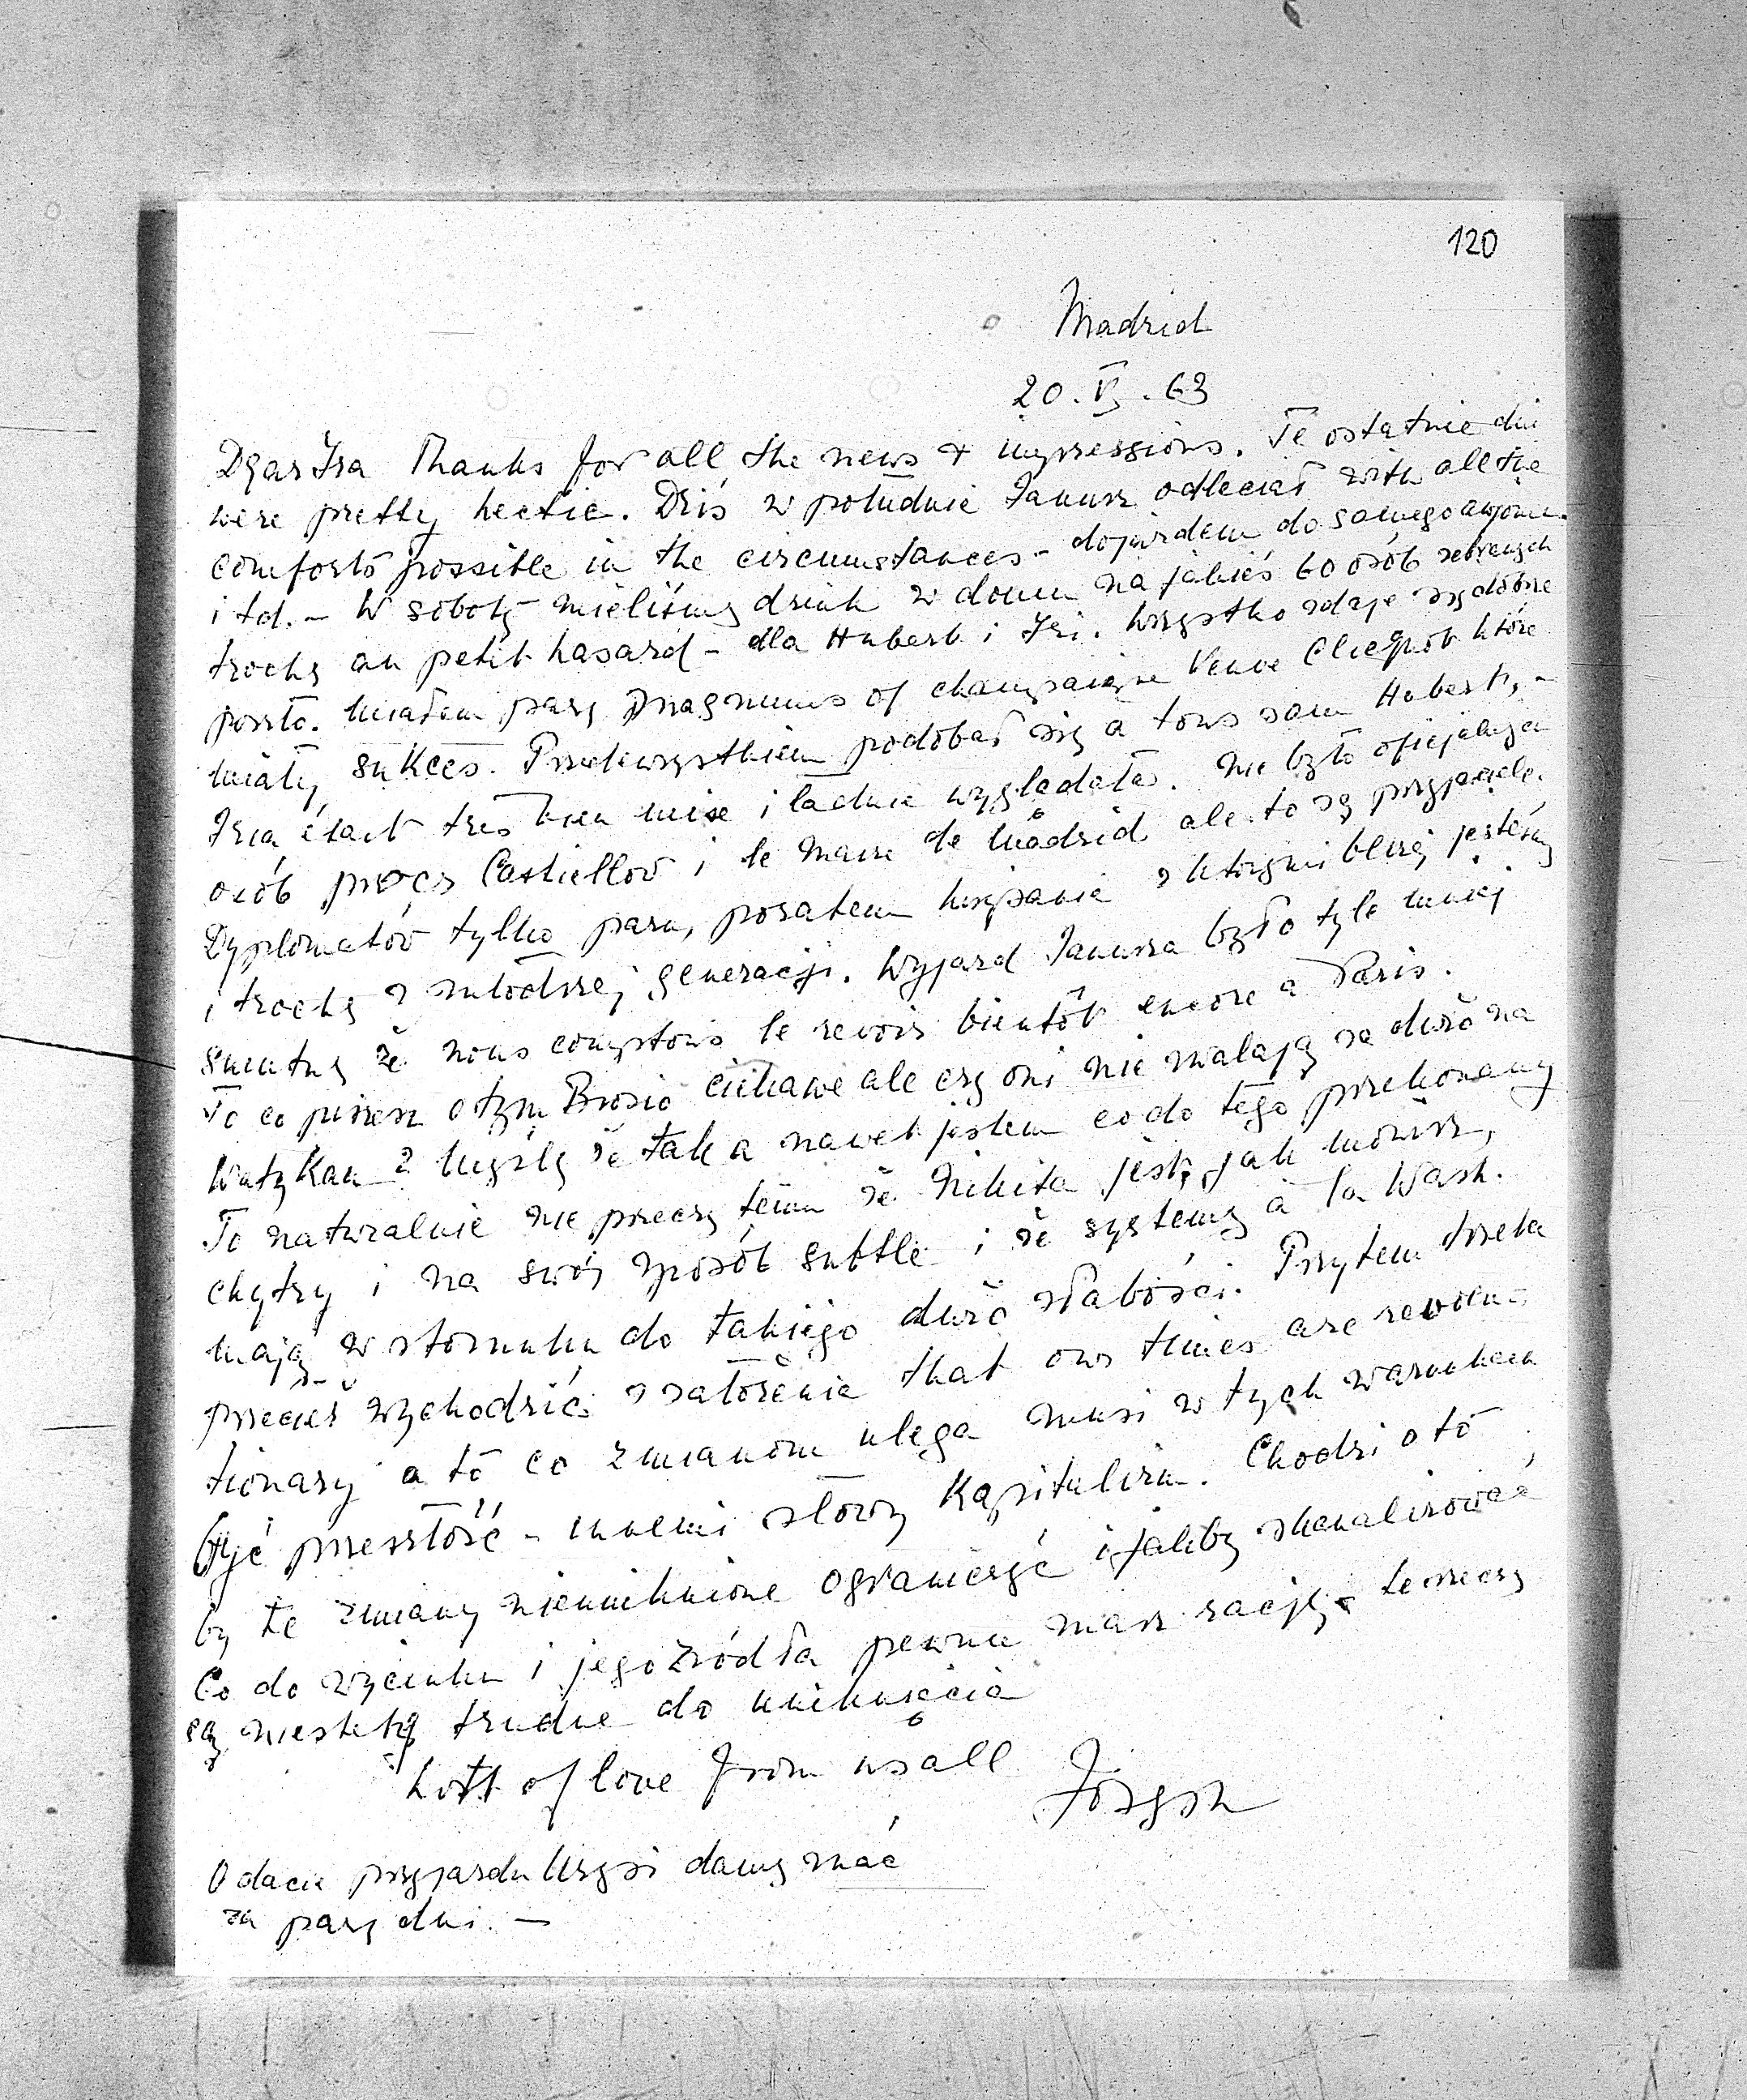 120
Madrid
20. VI. 63
Dear Isa Thanks for all the news & impressions. Te ostatnie dni
were pretty hectic. Dziś w południe Janusz odleciał with all the
comforts possible in the circumstances - dojazdem do samego
itd. - W sobotę mieliśmy drink w domu na jakieś 60 osób zebranych
trochę au petit hasard - dla Hubert i Izi. Wszystko zdaje się dobrze
poszło. Miałem parę magnums of champaigne Veuve Clicquot które
miały sukces. Przedewszystkiem podobał się a tous sam Hubert, -
Izia était très bien mise i ładnie wyglądała. Nie było oficjalnych
osób prócz Castiellów i le maire de Madrid ale to są przyjaciele.
Dyplomatów tylko paru, pozatem hiszpanie z którymi bliżej jesteśmy
i trochę z młodszej generacji. Wyjazd Janusza było tyle mniej
smutny że nous comptons le revoir bientôt encore a Paris.
To co piszesz o tym Brosio ciekawe ale czy oni nie zwalają za dużo na
Watykan? Myślę że tak a nawet jestem co do tego przekonany
To naturalnie nie przeczy temu że Nikita jest, jak mówisz,
chytry i na swój sposób subtle i że systemy à la Wash.
mają w stosunku do takiego dużo słabości. Przytem trzeba
przecież wychodzić z założenia that our times are revolu-
tionary a to co zmianom ulega musi w tych warunkach
być przeszłość - innemi słowy Kapitalizm. Chodzi o to
by te zmiany nieuniknione ograniczyć i jakby skanalizować
Co do wycinku i jego źródła pewnie masz rację, te rzeczy
są niestety trudne do uniknięcia
Lots of love from us all Józysz
O dacie przyjazdu Krysi damy znać
za parę dni. -